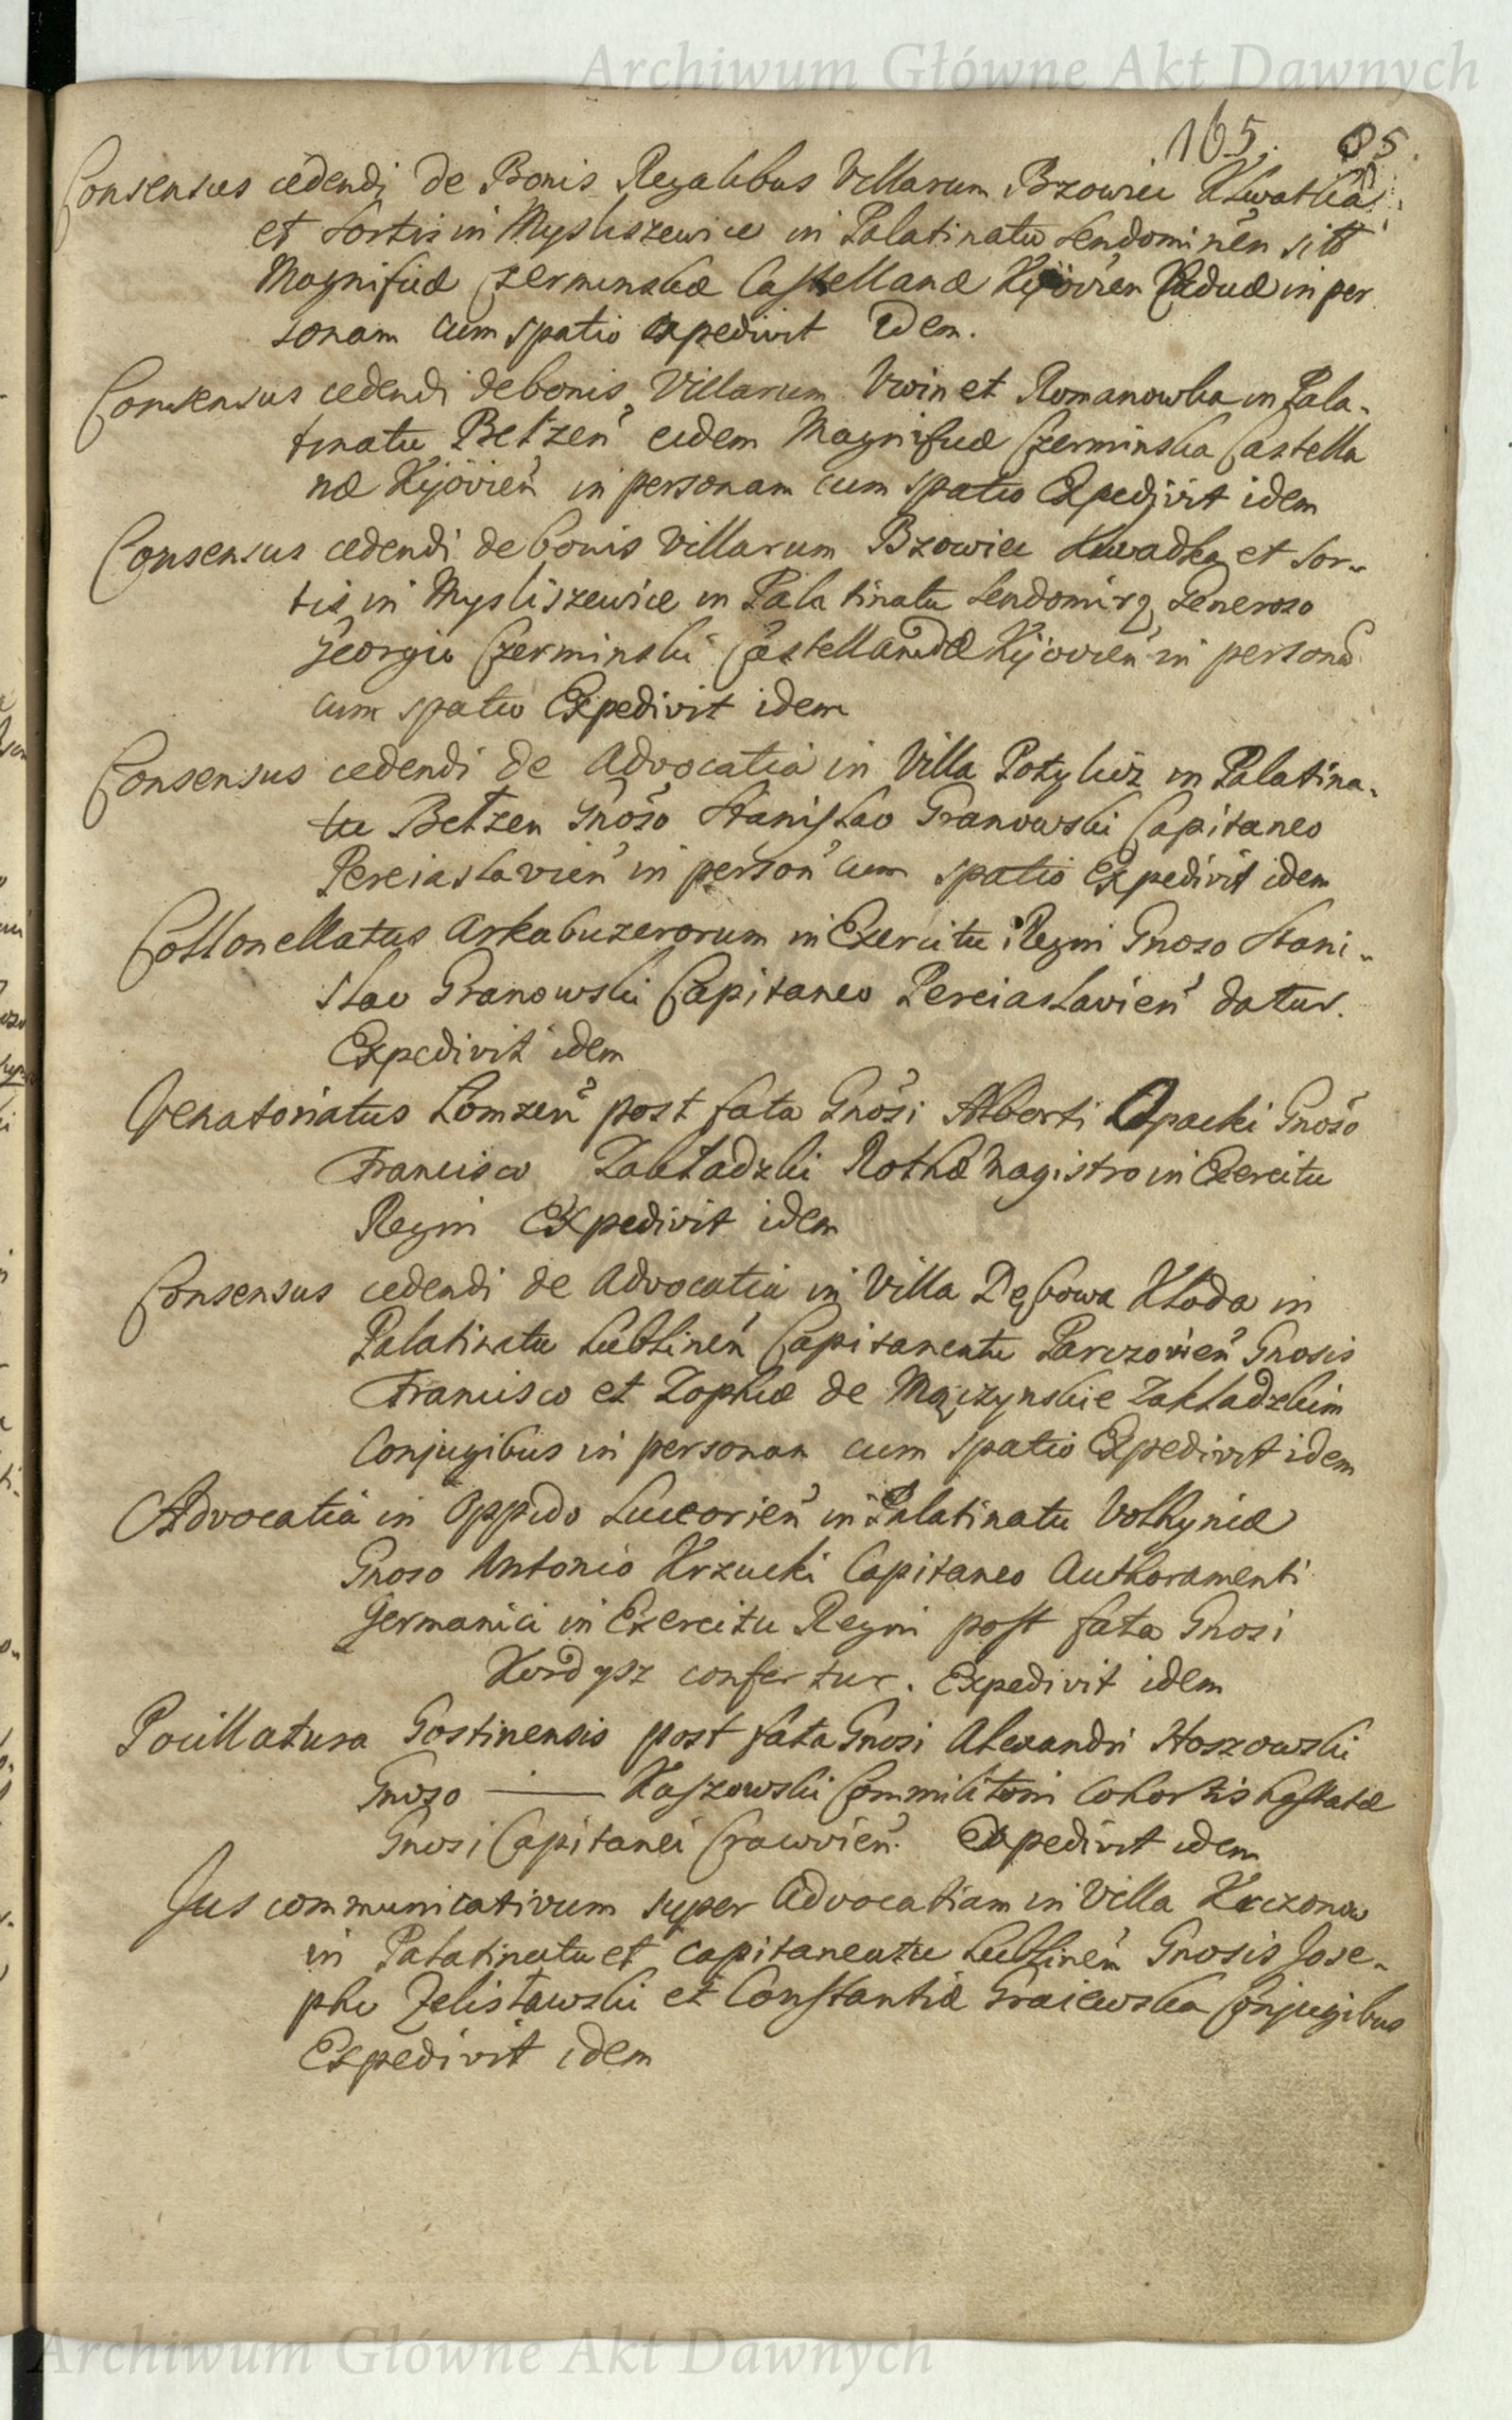 Archiwum Główne Akt Dawnych
165. 85.
Consensus cedendi de Bonis Regalibus Villarum Bzowiec Klwatka
et Sortis in Mysliszewice in Palatinatu Sendomirien sitt
Magnificæ Czerminska Castellanæ Kijovien Viduæ in per
sonam cum spatio expedivit idem.
Consensus cedendi de bonis Villarum Uwin et Romanowka in Pala-
tinatu Bełzen eidem Magnificæ Czerminska Castella
næ Kijovien in personam cum spatio Expedivit idem
Consensus cedendi de bonis Villarum Bzowiec Klwadka et Sor-
tis in Mysliszewice in Palatinatu Sendomirz Generoso
Georgio Czerminski Castellanidæ Kijovien in persona
cum spatio Expedivit idem
Consensus cedendi de Advocatia in Villa Potylicz in Palatina-
tu Bełzen Gnoso Stanislao Granowski Capitaneo
Pereiaslavien in person cum spatio Expedivit idem
Collonellatus Arkabuzerorum in Exercitu Regni Gnoso Stani-
slao Granowski Capitaneo Pereiaslavien datur.
Expedivit idem
Venatoriatus Lomzen post fata Gnosi Alberti Opacki Gnoso
Francisco Zakładzki Rothæ Magistro in Exercitu
Regni Expedivit idem
Consensus cedendi de Advocatia in Villa Dębowa Kłoda in
Palatinatu Lublinen Capitaneatu Parczovien Gnosis
Francisco et Zophiæ de Mączynskie Zakładzkim
Conjugibus in personam cum spatio Expedivit idem
Advocatia in Oppido Luceorien in Palatinatu Volhyniæ
Gnoso Antonio Krzucki Capitaneo Authoramenti
Germanici in Exercitu Regni post fata Gnosi
Kordysz confertur. Expedivit idem
Pocillatura Gostinensis post fata Gnosi Alexandri Hoszowski
Gnoso — Kaszowski Commilitoni Cohortis hastatæ
Gnosi Capitanei Crasvien. Expedivit idem
Jus communicativum super Advocatiam in Villa Krczonow
in Palatinatu et Capitaneatu Lublinen Gnosis Jose-
pho Zelisławski et Constantiæ Graiewska Conjugibus
Expedivit idem
Archiwum Główne Akt Dawnych